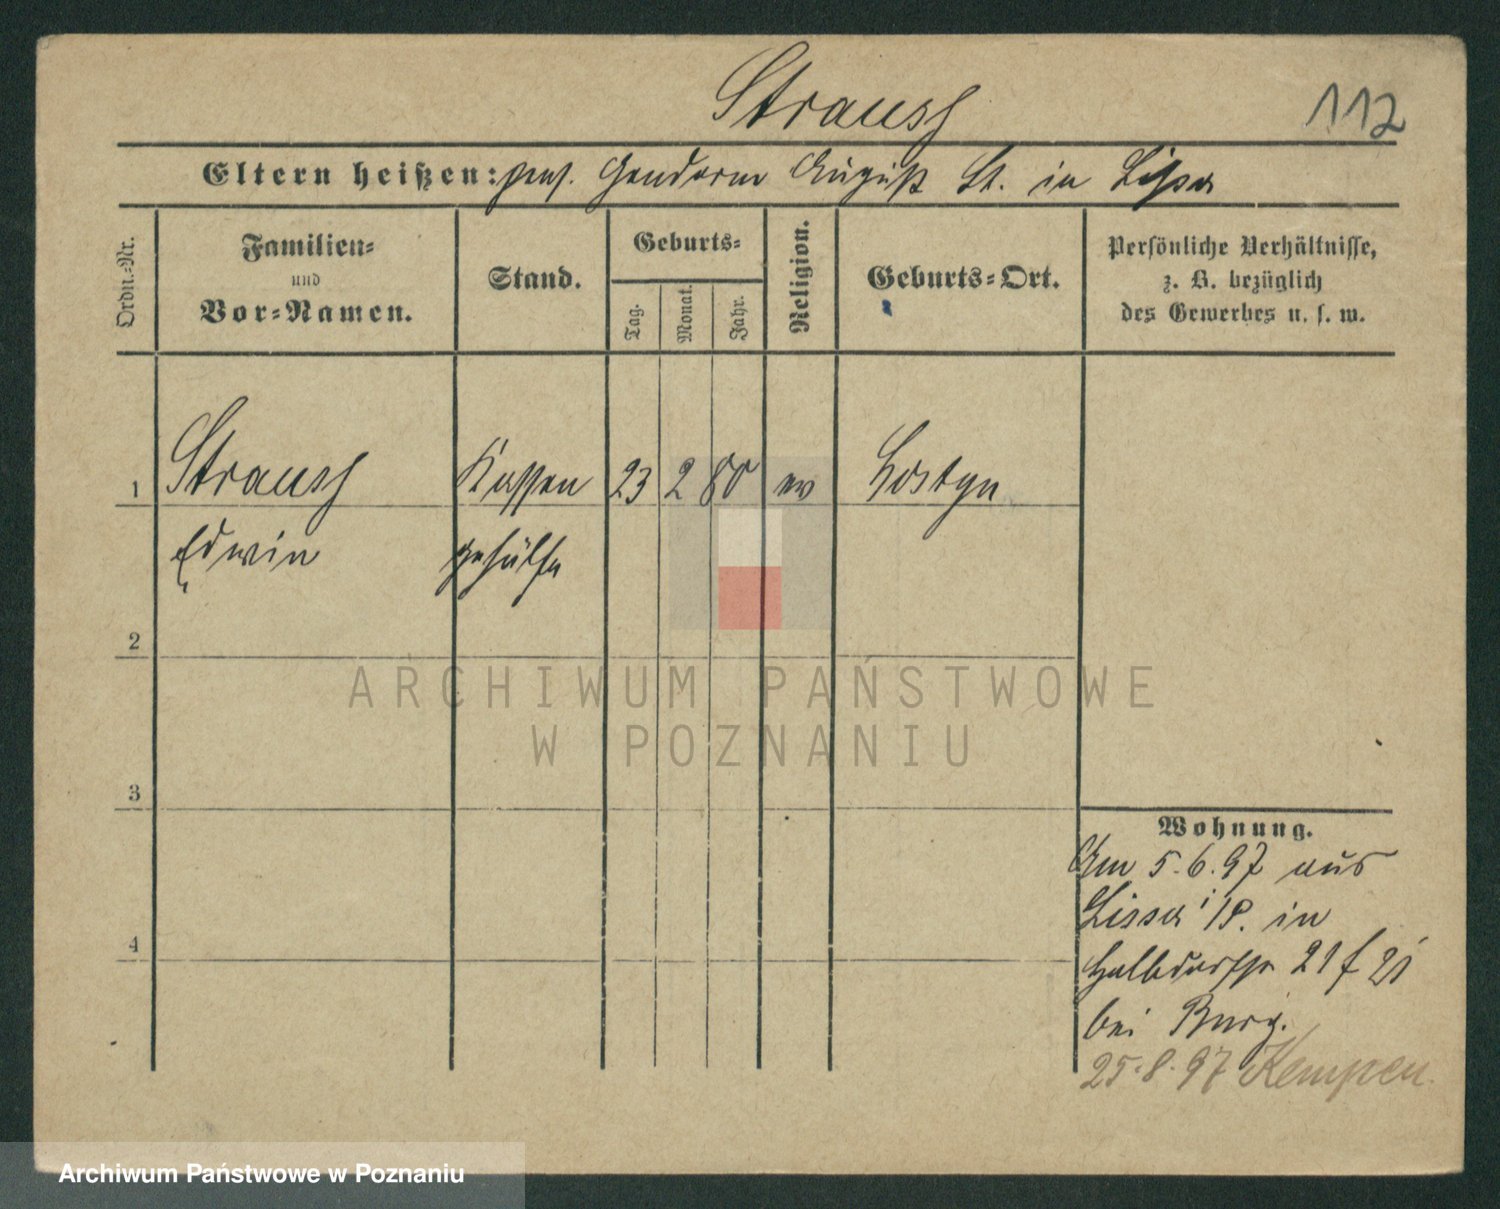 Strauss
112
Eltern heißen: pens. Gendarm August St. in Lissa
Ordn.-Nr.
Familien-
und
Vor-Namen.
Stand.
Geburts-
Tag.
Monat.
Jahr.
Religion.
Geburts-Ort.
Persönliche Verhältnisse,
z. B. bezüglich
des Gewerbes u. s. w.
1 Strauss Kassen 23 2 80 ev Gostyn
Edwin gehülfe
2
3
4
Wohnung.
Am 5.6.97 aus
Lissa i/P. in
Halbdorfstr 21
bei Burg.
25.8.97 Kempen.
ARCHIWUM PAŃSTWOWE
W POZNANIU
Archiwum Państwowe w Poznaniu